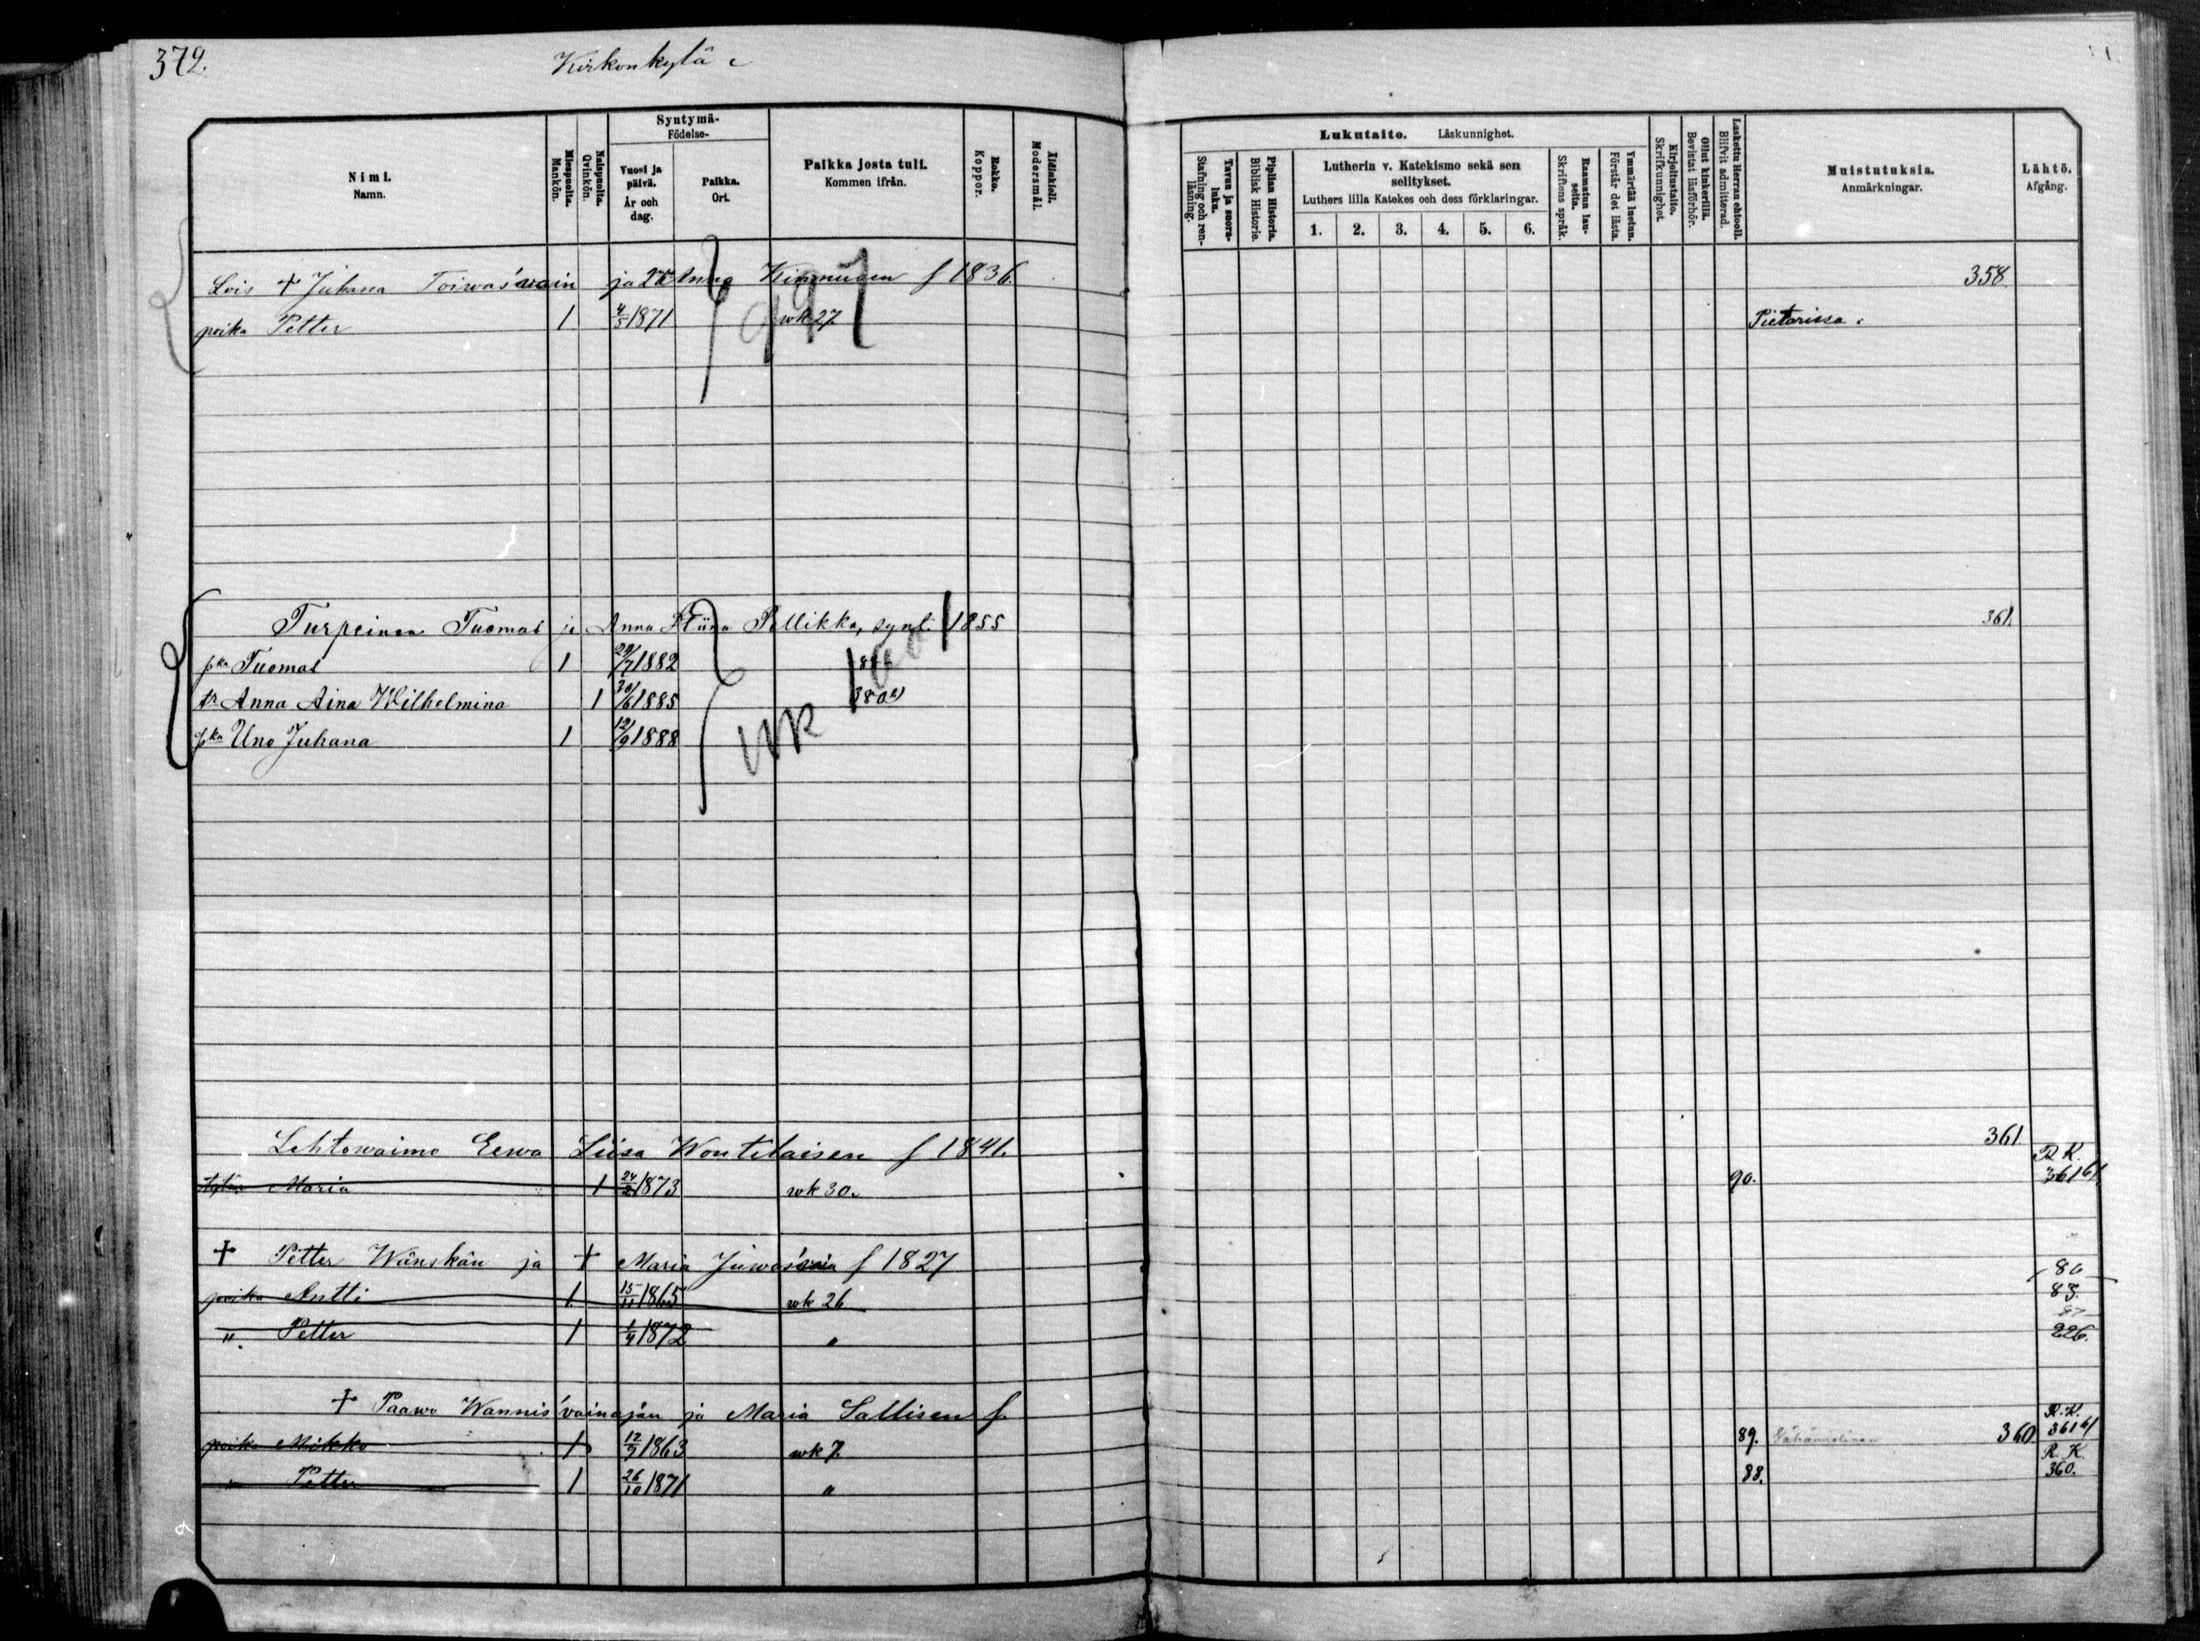 372.
Kirkonkylä
Nimi. Namn.
Miespuolia. Mankön.
Naispuolia. Qvinkön.
Syntymä- Födelse-
Vuosi ja päivä. År och dag.
Paikka. Ort.
Paikka josta tuli. Kommen ifrån.
Rokko. Koppor.
Äidinkieli. Modersmål.
Lukutaito. Läskunnighet.
Tavuu ja suoraluku. Stafning och renläsning.
Piplian Historia. Biblisk Historie.
Lutherin v. Katekismo sekä sen selitykset.
Luthers lilla Katekes och dess förklaringar.
1. 2. 3. 4. 5. 6.
Raamatun lauseita. Skriftens språk.
Ymmärtää luetun. Förstår det lästa.
Kirjoitustaito. Skrifkunnighet.
Ollut kinkerillä. Bevistat läsförhör.
Laskettu Herran ehtooll. Blifvit admitterad.
Muistutuksia. Anmärkningar.
Lähtö. Afgång.
Lois + Juhana Toiwas'wain ja Anna Kinnunen f 1836. 358
poika Petter 1 4/5 1871 wk 27 Pietarissa.
997
Turpeinen Tuomas ja Anna Stiina Pellikka, synt. 1855 361.
pka Tuomas 1 29/7 1882
tr Anna Aina Wilhelmina 1 30/6 1885 380
pka Uno Juhana 1 12/9 1888
wk
Lehtowaimo Eewa Liisa Wontelaisen f 1841. 361
tytär Maria 1 24/2 1873 wk 30. 90. R.K. 361 61.
+ Petter Wänskän ja + Maria Juwas'wain f 1827
poika Antti 1 15/11 1865 wk 26 83.
" Petter 1 1/4 1872 " 226.
+ Paawo Wannis'vainajan ja Maria Sallisen f.
poika Mikko 1 12/9 1863 wk 7. 89. 360 R.K. 361 61
" Petter 1 26/10 1871 " 88. R.K. 360.